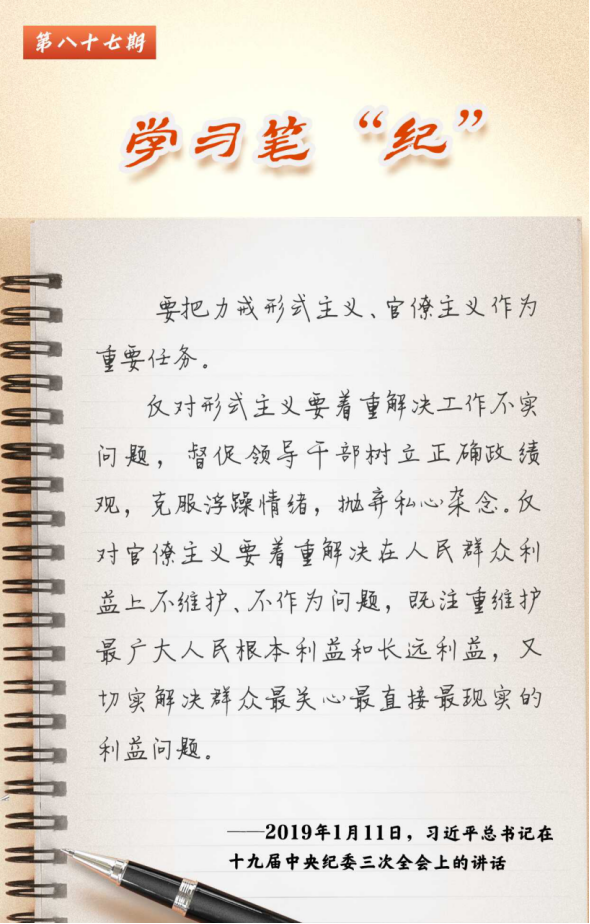 第八十七期
学习笔“纪”
要把力戒形式主义、官僚主义作为
重要任务。
反对形式主义要着重解决工作不实
问题，督促领导干部树立正确政绩
观，克服浮躁情绪，抛弃私心杂念。反
对官僚主义要着重解决在人民群众利
益上不维护、不作为问题，既注重维护
最广大人民根本利益和长远利益，又
切实解决群众最关心最直接最现实的
利益问题。
——2019年1月11日，习近平总书记在
十九届中央纪委三次全会上的讲话